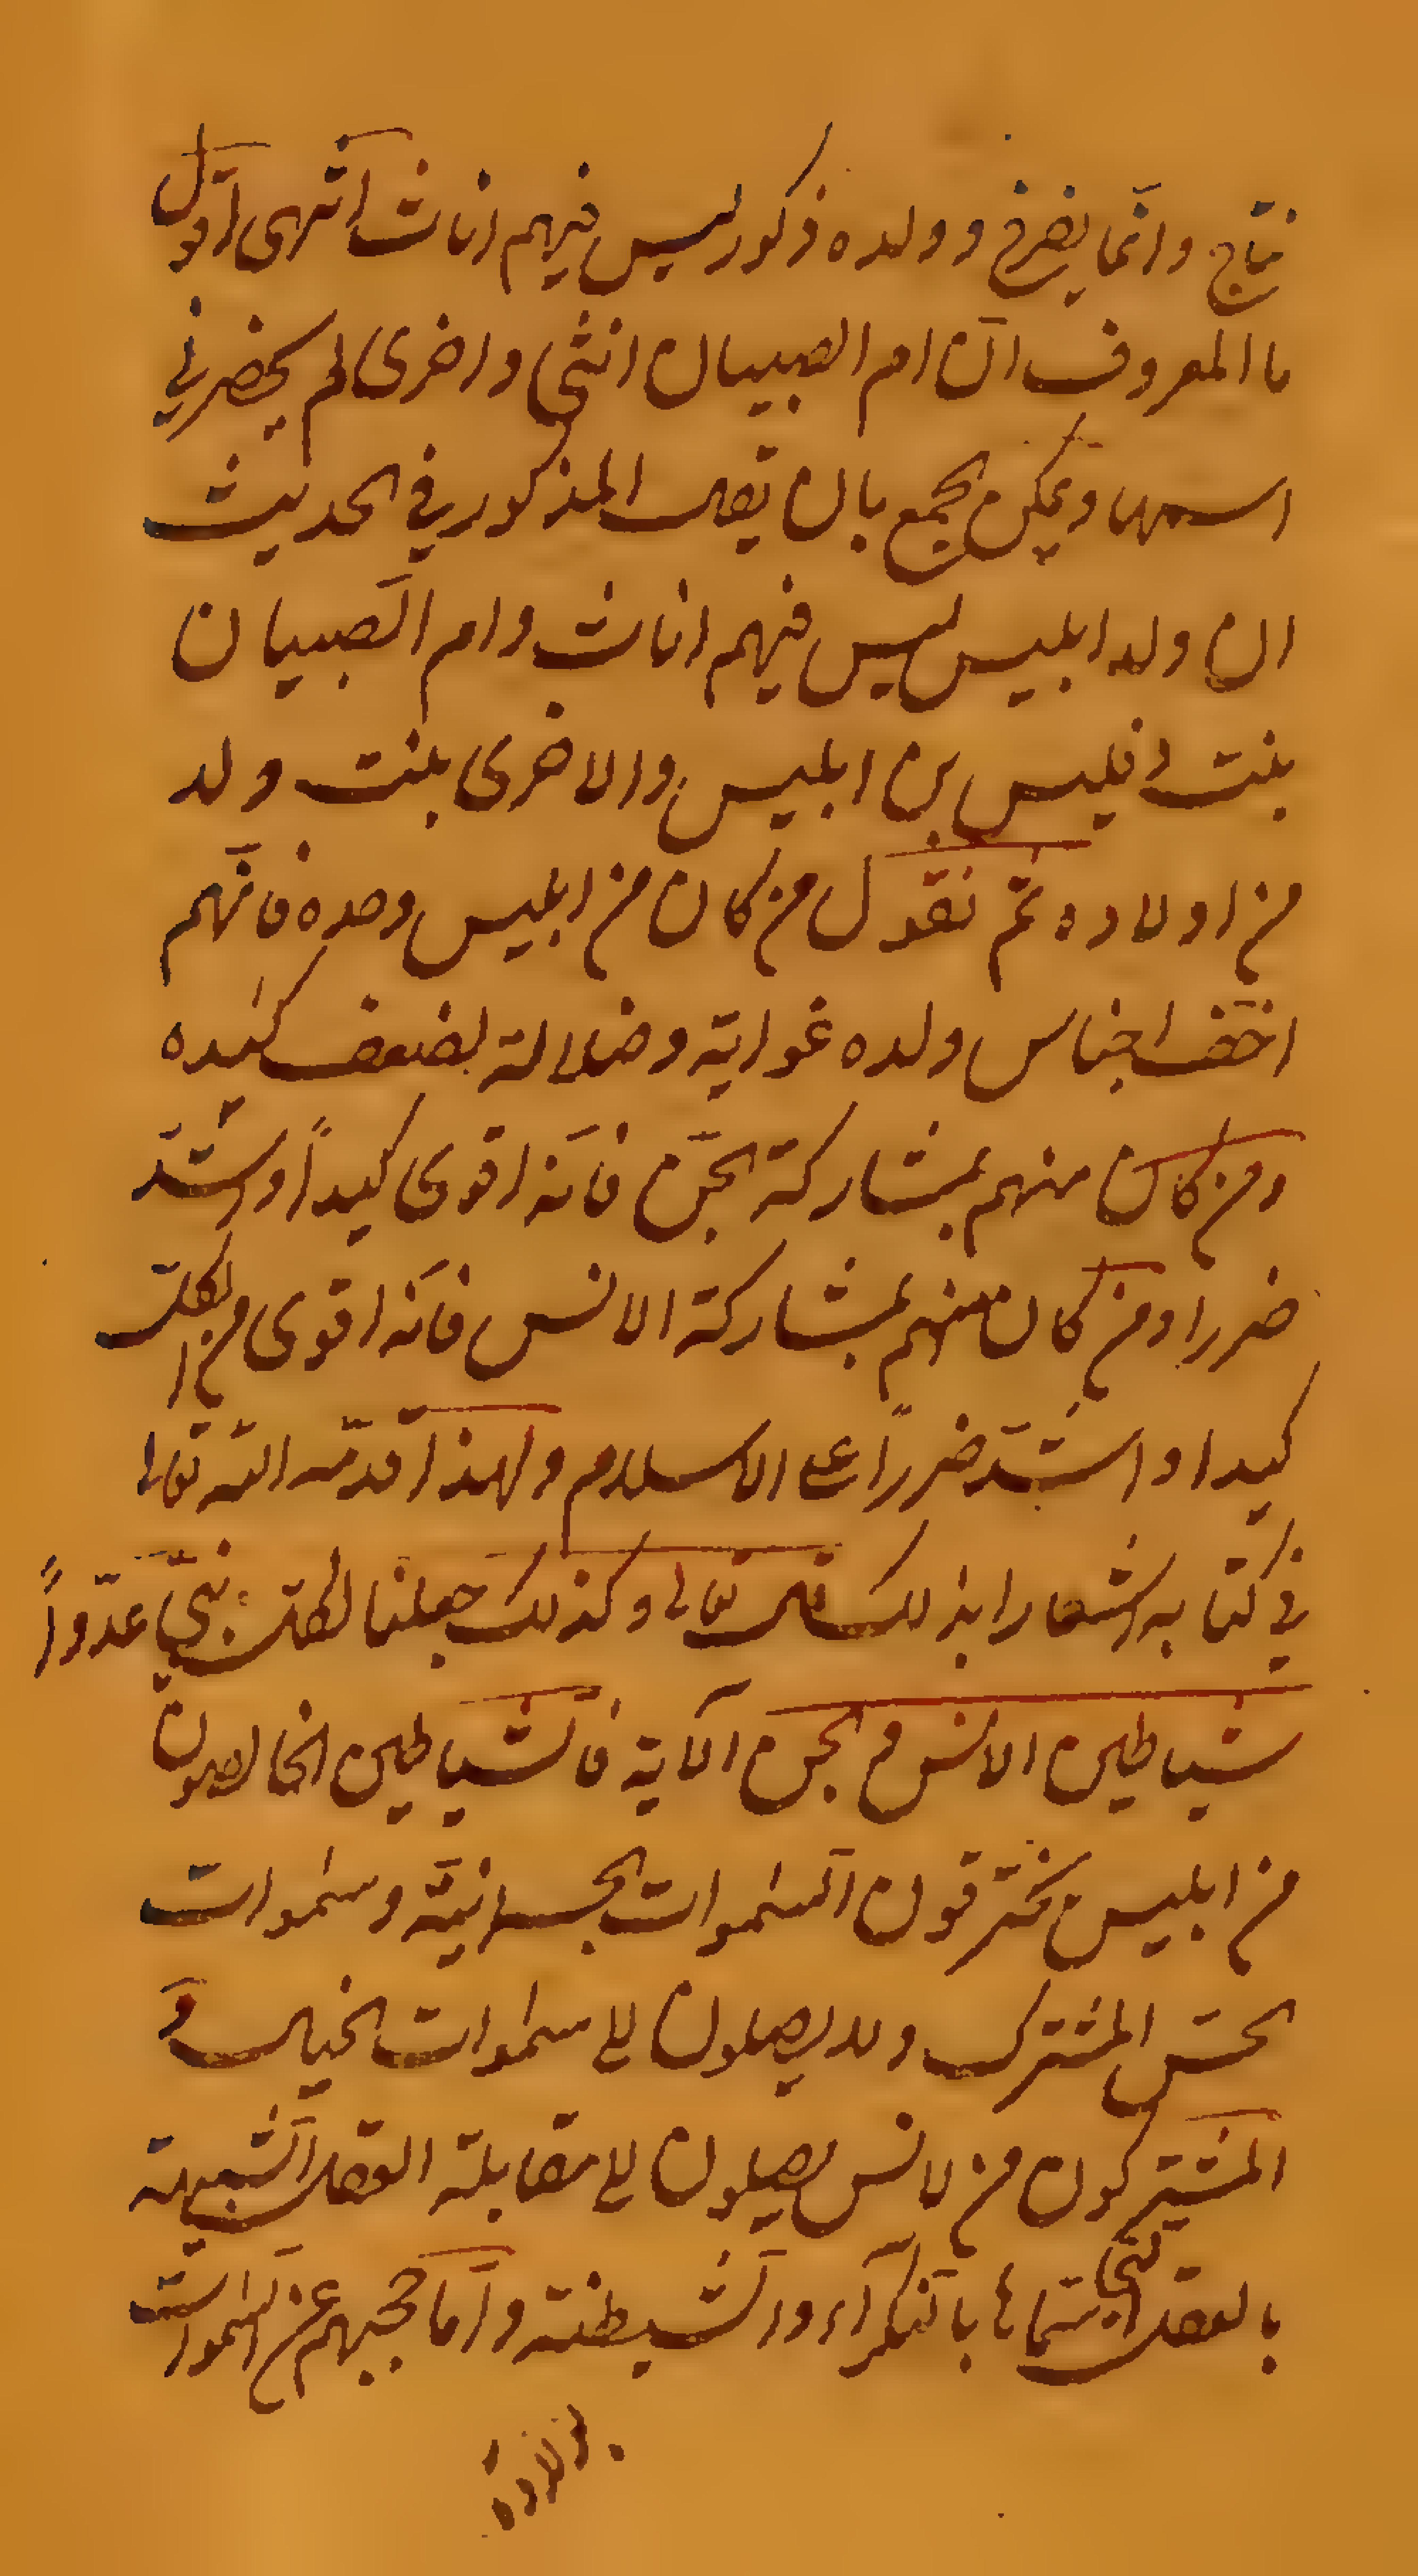 نتاج وانّما يفرخ وولده ذكور ليس فيهم اناث انتهى اقول
ما المعروف انّ ام الصبيان انثى واخرى لم يحضرني
اسمها ويمكن الجمع بان يقال المذكور في الحديث
ان ولد ابليس ليس فيهم اناث وام الصّبيان
بنت ابليس بن ابليس والاخرى بنت ولد
من اولاده ثم نقول من كان من ابليس وحده فانّهم
اخفّ اجناس ولده غواية وضلالة لضعف كيده
ومن كان منهم بمشاركة الجنّ فانّه اقوى كيداً واشدّ
ضررا ومن كان منهم بمشاركة الانس فانّه اقوى من الكلّ
كيدا واشدّ ضرراً على الاسلام ولهذا قدّمه اللّه تعالى
في كتابه اشعارا بذلك قال تعالى وكذلك جعلنا لكلّ نبيّ عدّواً
شياطين الانس والجن الآية فالشّياطين الخالصون
من ابليس يخترقون السّموات الجسمانيّة وسموات
الحسّ المشترك ولا يصلون الى سموات الخيال وَ
المشتركون من الانس يصلون الى مقابلة العقل الشّبيهة
بالعقل الّتي سمّاها بالنّكرآء والشّيطنة وامّا حجبهم عن السّموات